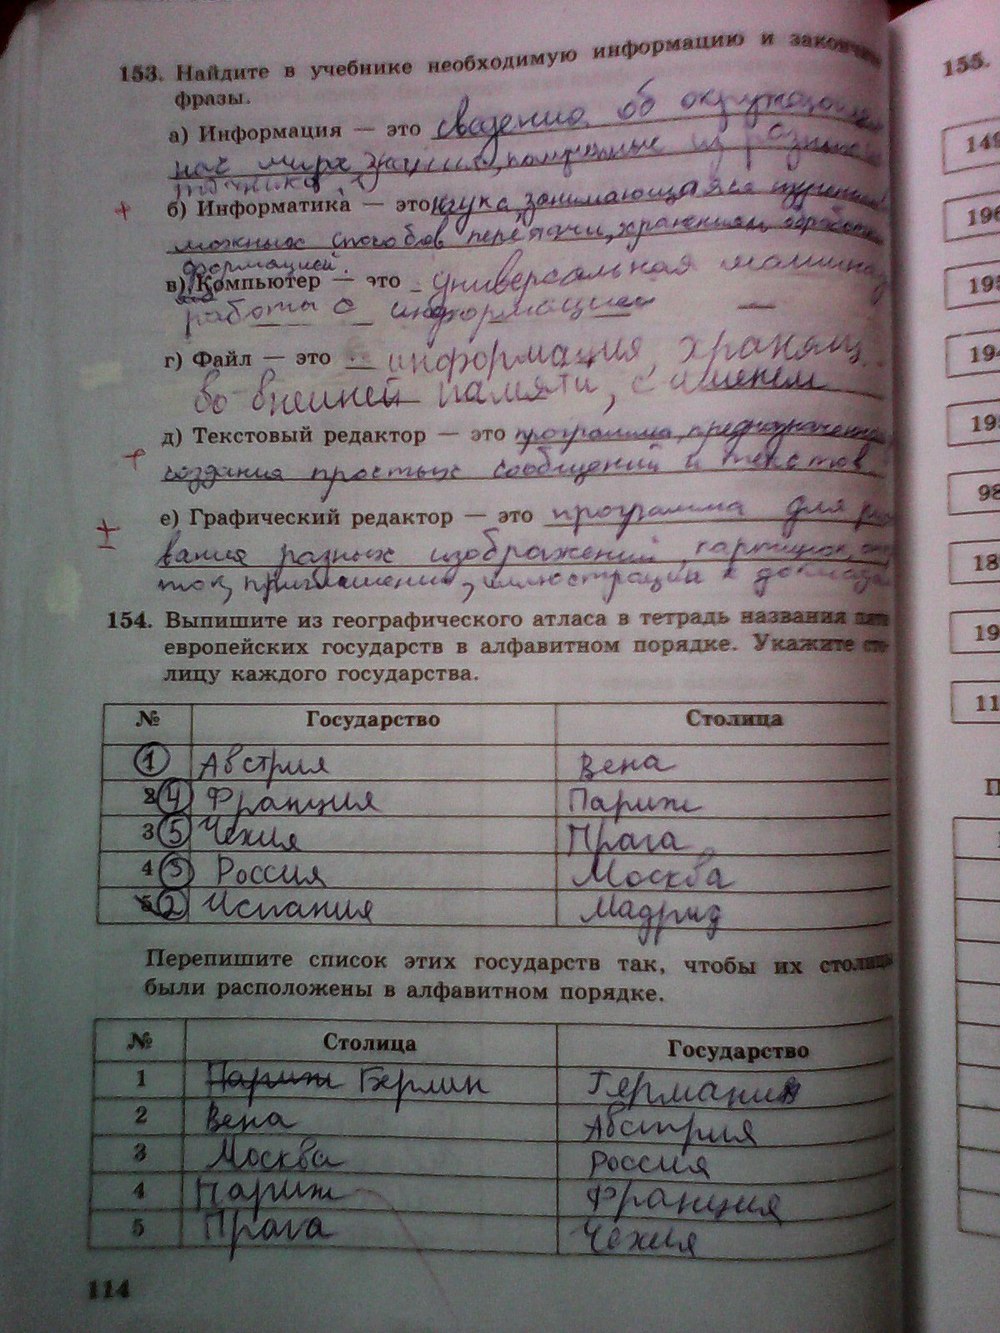 153. Найдите в учебнике необходимую информацию и закончите
фразы.
а) Информация — это сведения об окружающем
нас мире, знания, полученные из разных
б) Информатика — это наука, занимающаяся изучением
можных способов передачи, хранения, обработки
формацией.
в) Компьютер — это универсальная машина
работы с информацией
г) Файл — это информация, хранящ.
во внешней памяти, с именем
д) Текстовый редактор — это программа, предназначенная
создания простых сообщений и текстов
е) Графический редактор — это программа для рисо
вания разных изображений, картинок, от
ток, приглашений, иллюстраций к докладам
154. Выпишите из географического атласа в тетрадь названия пяти
европейских государств в алфавитном порядке. Укажите сто-
лицу каждого государства.
№ Государство Столица
1 Австрия Вена
2 4 Франция Париж
3 5 Чехия Прага
4 3 Россия Москва
5 2 Испания Мадрид
Перепишите список этих государств так, чтобы их столицы
были расположены в алфавитном порядке.
№ Столица Государство
1 Париж Берлин Германия
2 Вена Австрия
3 Москва Россия
4 Париж Франция
5 Прага Чехия
114
155.
149
196
195
194
193
98
18
19
11
П